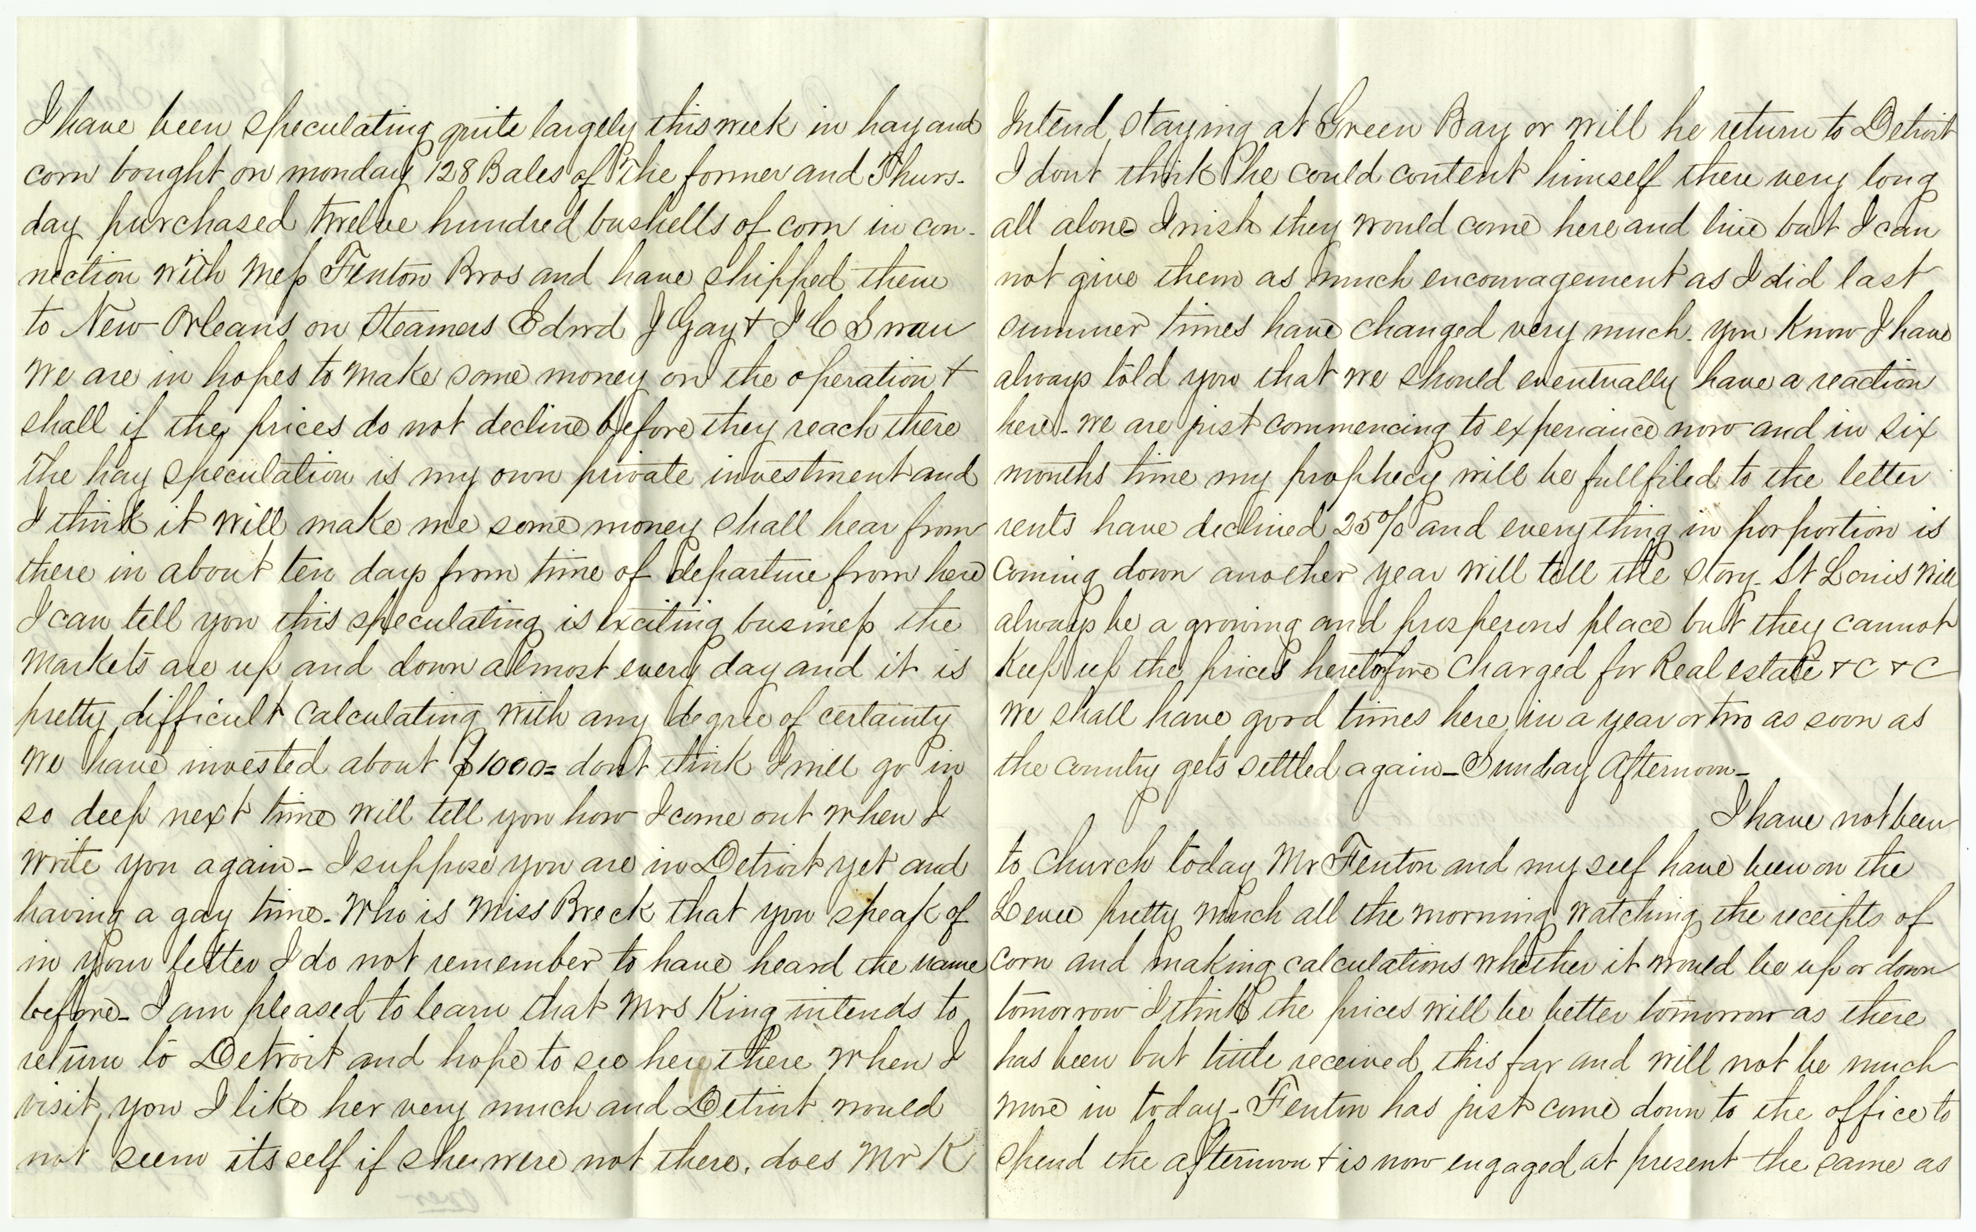 I have been speculating quite largely this week in hay and
corn bought on monday 128 Bales of the former and Thurs-
day purchased twelve hundred bushells of corn in con-
nection with Mess Fenton Bros and have shipped them
to New Orleans on Steamers Edwd J Gay & J C Swan
We are in hopes to make some money on the operation &
shall if the prices do not decline before they reach there
the hay speculation is my own private investment and
I think it will make me some money shall hear from
there in about ten days from time of departure from here
I can tell you this speculating is exciting business the
Markets are up and down almost every day and it is
pretty difficult calculating with any degree of certainty
We have invested about $1000= dont think I will go in
so deep next time will tell you how I come out when I
write you again - I suppose you are in Detroit yet and
having a gay time. Who is Miss Breck that you speak of
in your letter I do not remember to have heard the name
before - I am pleased to learn that Mrs King intends to
return to Detroit and hope to see her there when I
visit you I like her very much and Detroit would
not seem its self if she were not there. does Mr K
over
Intend staying at Green Bay or will he return to Detroit
I dont think he could content himself there very long
all alone I wish they would come here and live but I can
not give them as much encouragement as I did last
summer times have changed very much. you know I have
always told you that we should eventually have a reaction
here - we are just commencing to experiance now and in six
months time my prophecy will be fullfiled to the letter
rents have declined 25% and everything in porportion is
coming down another year will tell the story. St Louis will
always be a growing and prosperous place but they cannot
Keep up the prices heretofore charged for Real estate &C &C
We shall have good times here in a year or two as soon as
the country gets settled again - Sunday Afternoon -
I have not been
to church today Mr Fenton and my self have been on the
Levee pretty much all the morning watching the receipts of
corn and making calculations whether it would be up or down
tomorrow I think the prices will be better tomorrow as there
has been but little received this far and will not be much
more in today - Fenton has just come down to the office to
spend the afternoon & is now engaged at present the same as